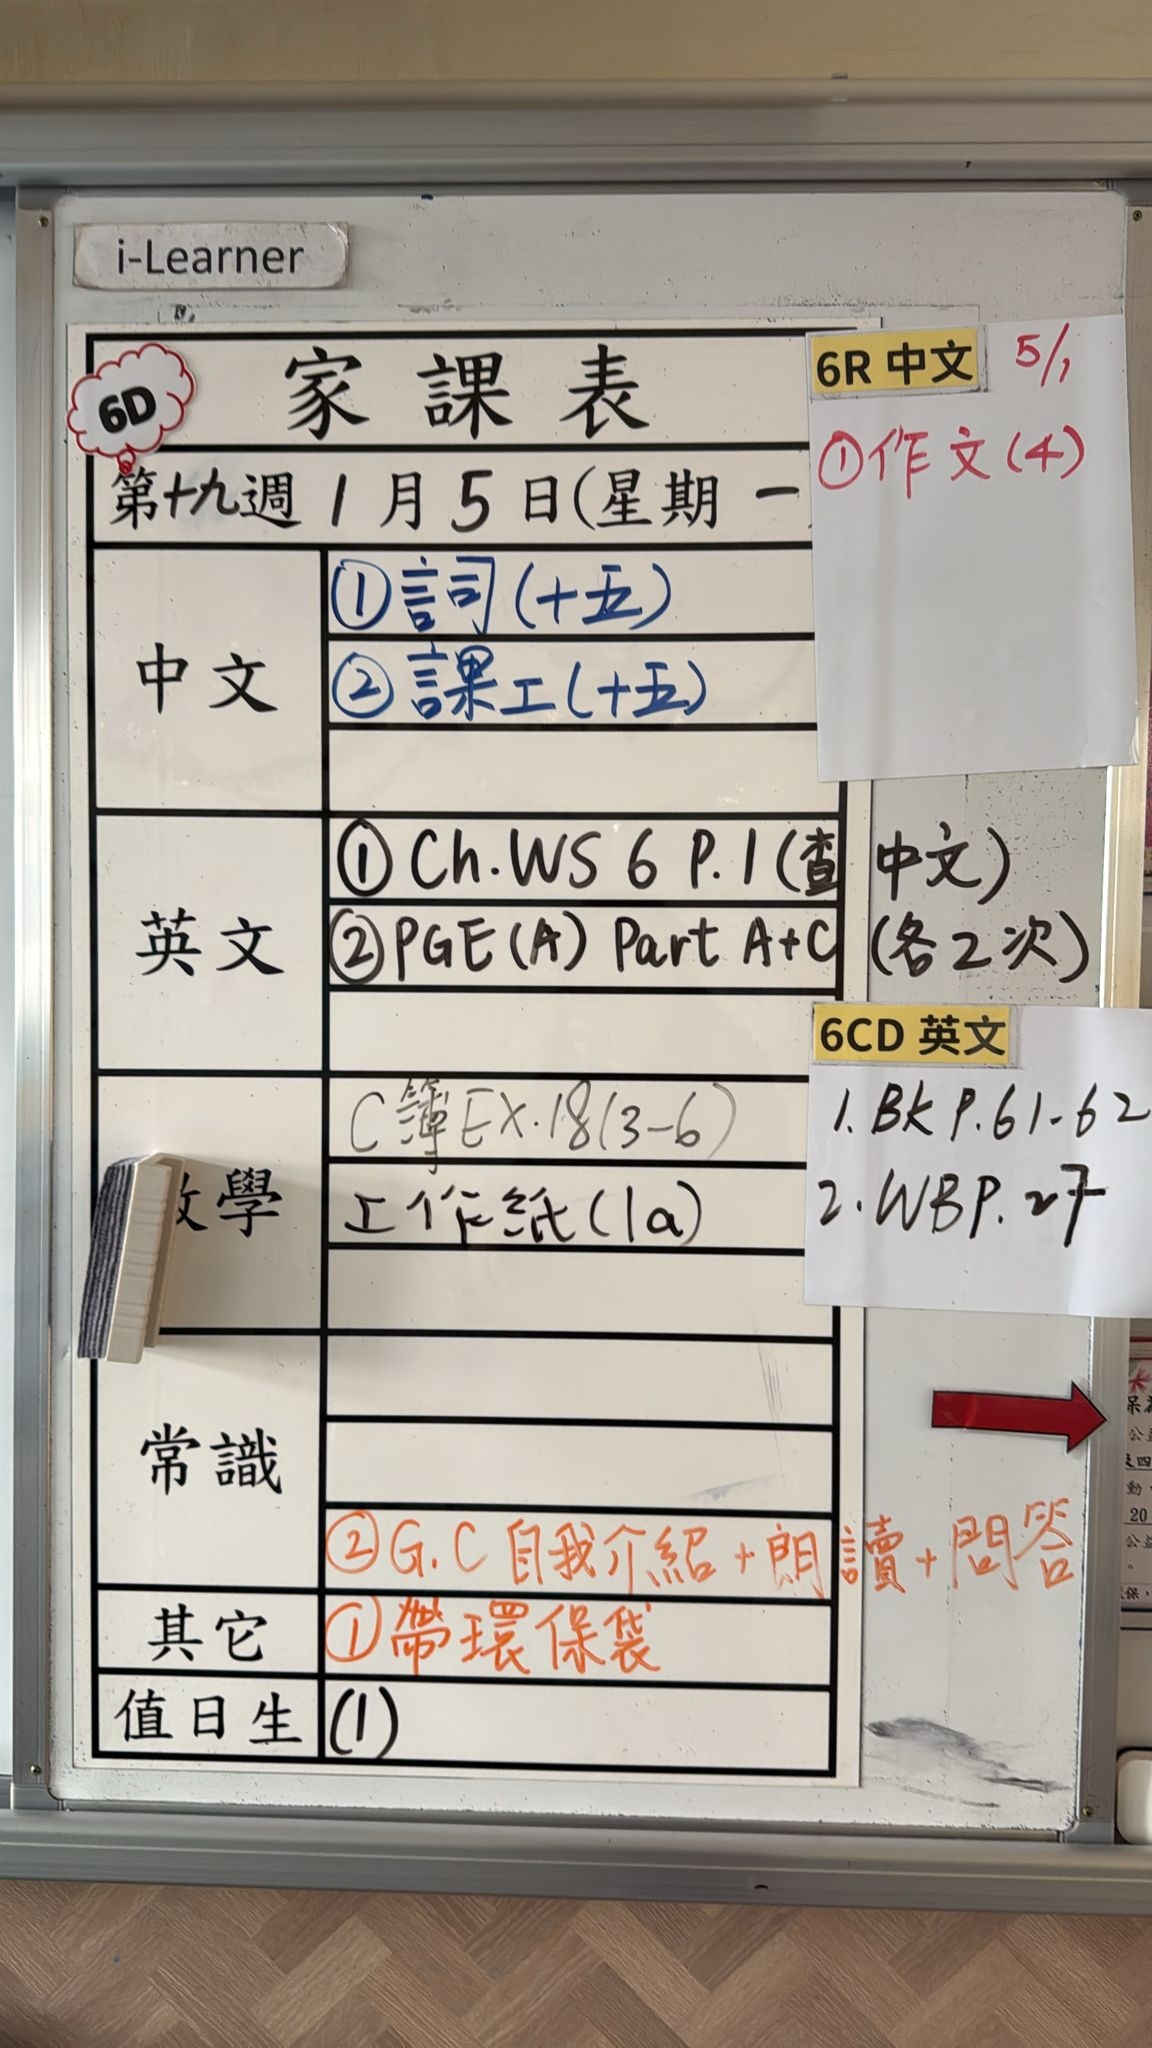 i-Learner
6D
家課表
第十九週 1月5日(星期一
中文
①詞(十五)
②課工(十五)
6R 中文 5/1
①作文(4)
英文
①Ch.WS 6 P.1(查中文)
②PGE(A) Part A+C (各2次)
6CD 英文
1. BK P.61-62
2. WB P.27
數學
C簿EX.18(3-6)
工作紙(1a)
常識
②G.C 自我介紹+朗讀+問答
其它
①帶環保袋
值日生
(1)
20